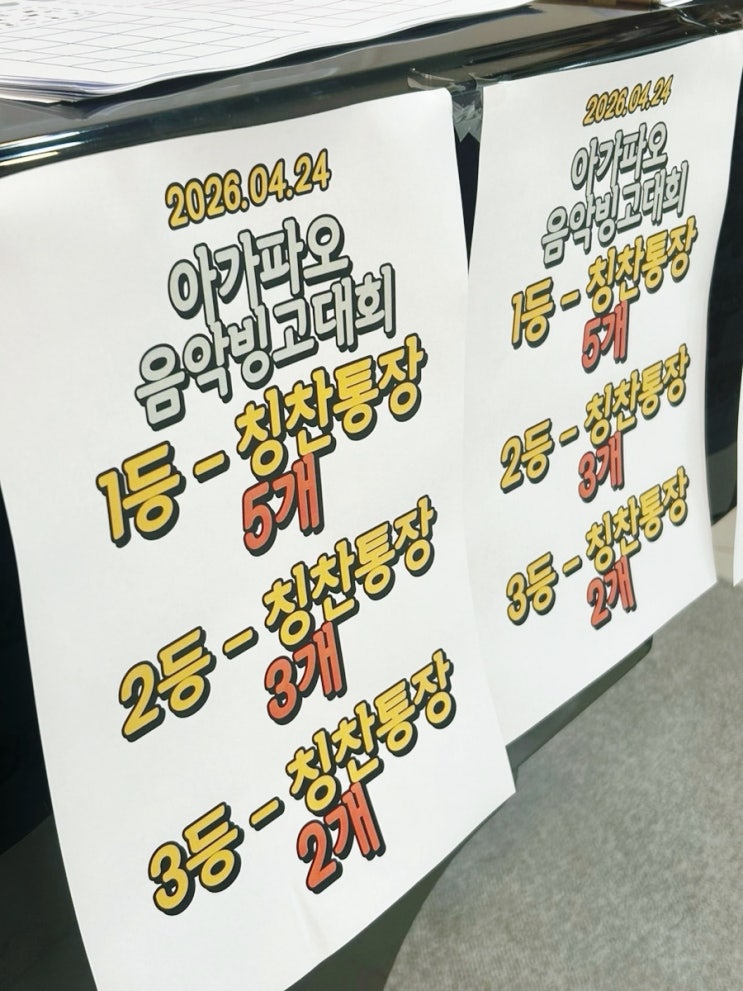 2026.04.24
아가파오
음악빙고대회
1등 - 칭찬통장
5개
2등 - 칭찬통장
3개
3등 - 칭찬통장
2개
2026.04.24
아가파오
음악빙고대회
1등 - 칭찬통장
5개
2등 - 칭찬통장
3개
3등 - 칭찬통장
2개